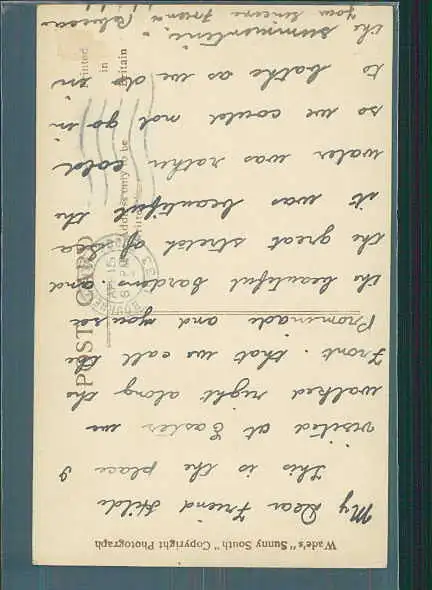 Wade's "Sunny South" Copyright Photograph
My Dear Friend Hilde
This is the place I
visited at Easter we
walked right along the
Front. that we call the
Promenade and you see
the beautiful Gardens. and
the great stretch of sea
it was beautiful the
water was rather cold
so we could not go in
to bathe as we do in
the summertime.
Your sincere Friend
POST CARD
Address only to be
Printed
in
Britain